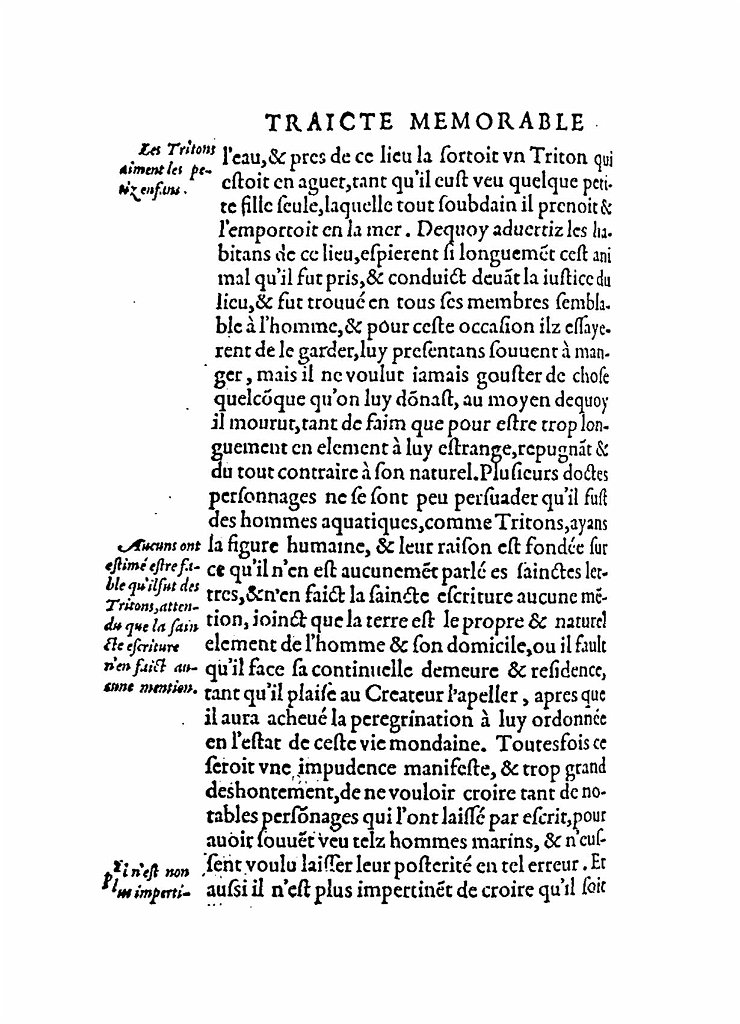 TRAICTE MEMORABLE
Les Tritons
aiment les pe-
tiz enfans.
l'eau,& pres de ce lieu la ſortoit vn Triton qui
eſtoit en aguet,tant qu'il euſt veu quelque peti-
te fille ſeule,laquelle tout ſoubdain il prenoit &
l'emportoit en la mer. Dequoy aduertiz les ha-
bitans de ce lieu,eſpierent ſi longuemẽt ceſt ani
mal qu'il fut pris,& conduict deuãt la iuſtice du
lieu,& fut trouué en tous ſes membres ſembla-
ble à l'homme,& pour ceſte occaſion ilz eſſaye-
rent de le garder,luy preſentans ſouuent à man-
ger, mais il ne voulut iamais gouſter de choſe
quelcõque qu'on luy dõnaſt, au moyen dequoy
il mourut,tant de faim que pour eſtre trop lon-
guement en element à luy eſtrange,repugnãt &
du tout contraire à ſon naturel.Pluſieurs doctes
perſonnages ne ſe ſont peu perſuader qu'il fuſt
des hommes aquatiques,comme Tritons,ayans
la figure humaine, & leur raiſon eſt fondée ſur
ce qu'il n'en eſt aucunemẽt parlé es ſainctes let-
tres,&n'en faict la ſaincte eſcriture aucune mẽ-
tion, ioinct que la terre eſt le propre & naturel
element de l'homme & ſon domicile,ou il fault
qu'il face ſa continuelle demeure & reſidence,
tant qu'il plaiſe au Createur l'apeller, apres que
il aura acheué la peregrination à luy ordonnée
en l'eſtat de ceſte vie mondaine. Toutesfois ce
ſeroit vne impudence manifeſte, & trop grand
deshontement,de ne vouloir croire tant de no-
tables perſõnages qui l'ont laiſſé par eſcrit,pour
auoir ſouuẽt veu telz hommes marins, & n'euſ-
ſent voulu laiſſer leur poſterité en tel erreur. Et
auſsi il n'eſt plus impertinẽt de croire qu'il ſoit
Aucuns ont
eſtimé eſtre fa-
ble qu'il fut des
Tritons,atten-
du que la ſain
cte eſcriture
n'en faict au-
cune mention.
Il n'eſt non
plus imperti-